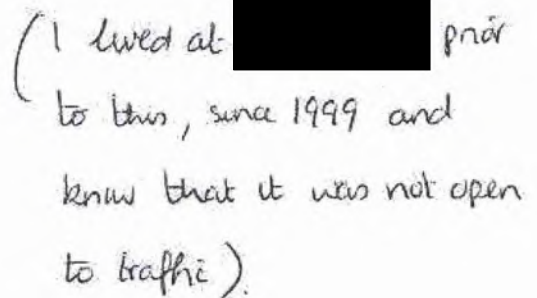 (I lived at prior
to this, since 1999 and
know that it was not open
to traffic).